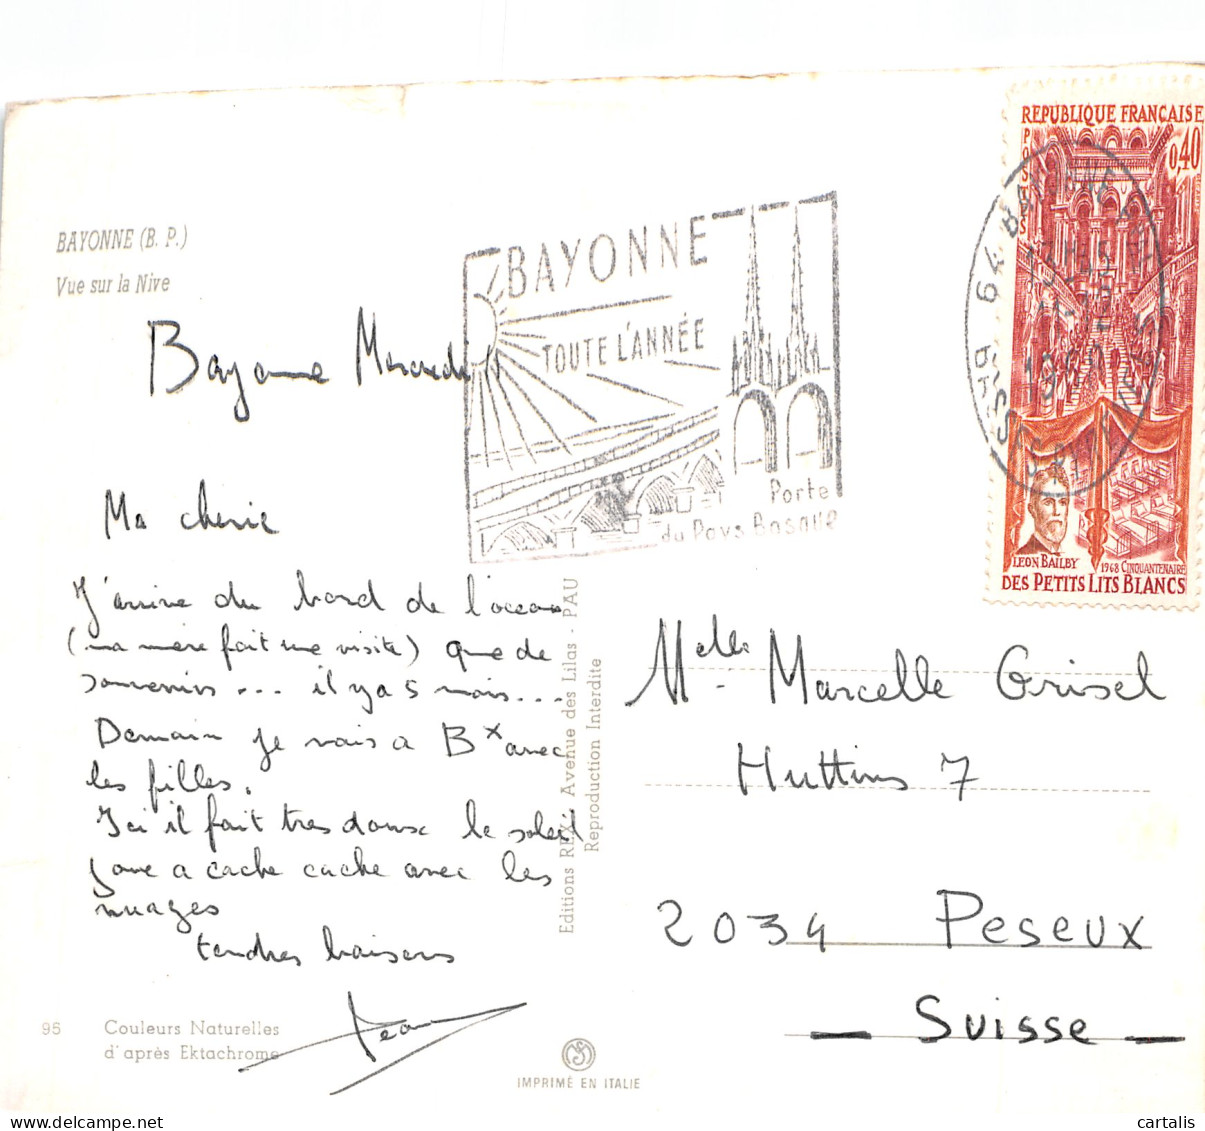 REPUBLIQUE FRANÇAISE
POSTES
0,40
LEON BAILBY
1968 CINQUANTENAIRE
DES PETITS LITS BLANCS
64 BAYONNE
1968
BAYONNE
TOUTE L'ANNÉE
Porte
du Pays Basque
BAYONNE (B. P.)
Vue sur la Nive
Bayonne
Ma cherie
J'arrive du bord de l'ocean
(ma mère fait une visite) que de
souvenirs ... il y a 5 mois...
Demain je vais a Bx avec
les filles.
Ici il fait tres doux le soleil
joue a cache cache avec les
nuages
tendres baisers
Jean
95
Couleurs Naturelles
d'après Ektachrome
Editions REX, Avenue des Lilas - PAU
Reproduction Interdite
IMPRIMÉ EN ITALIE
Melle Marcelle Grisel
Huttins 7
2034 Peseux
— Suisse —
cartalis